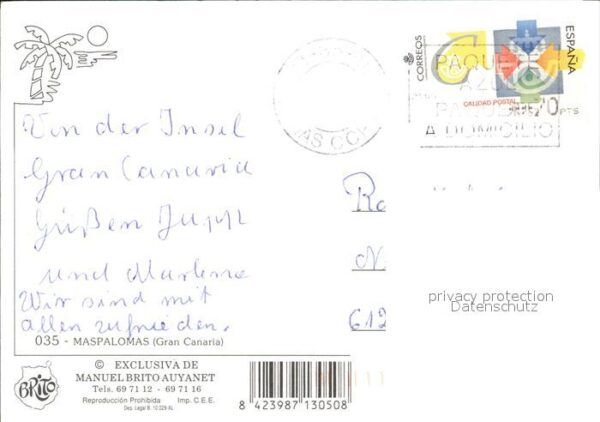 CORREOS
ESPAÑA
CALIDAD POSTAL
70 PTS
PAQUE
AZU
PAQUE
A DOMICILIO
Von der Insel
Gran Canaria
Grüßen Jupp
und Marlene
Wir sind mit
allen zufrieden.
Ro
N.
612
privacy protection
Datenschutz
035 - MASPALOMAS (Gran Canaria)
BRITO
© EXCLUSIVA DE
MANUEL BRITO AUYANET
Tels. 69 71 12 - 69 71 16
Reproducción Prohibida Imp. C.E.E.
Dep. Legal B. 10.029-XL
8 423987 130508